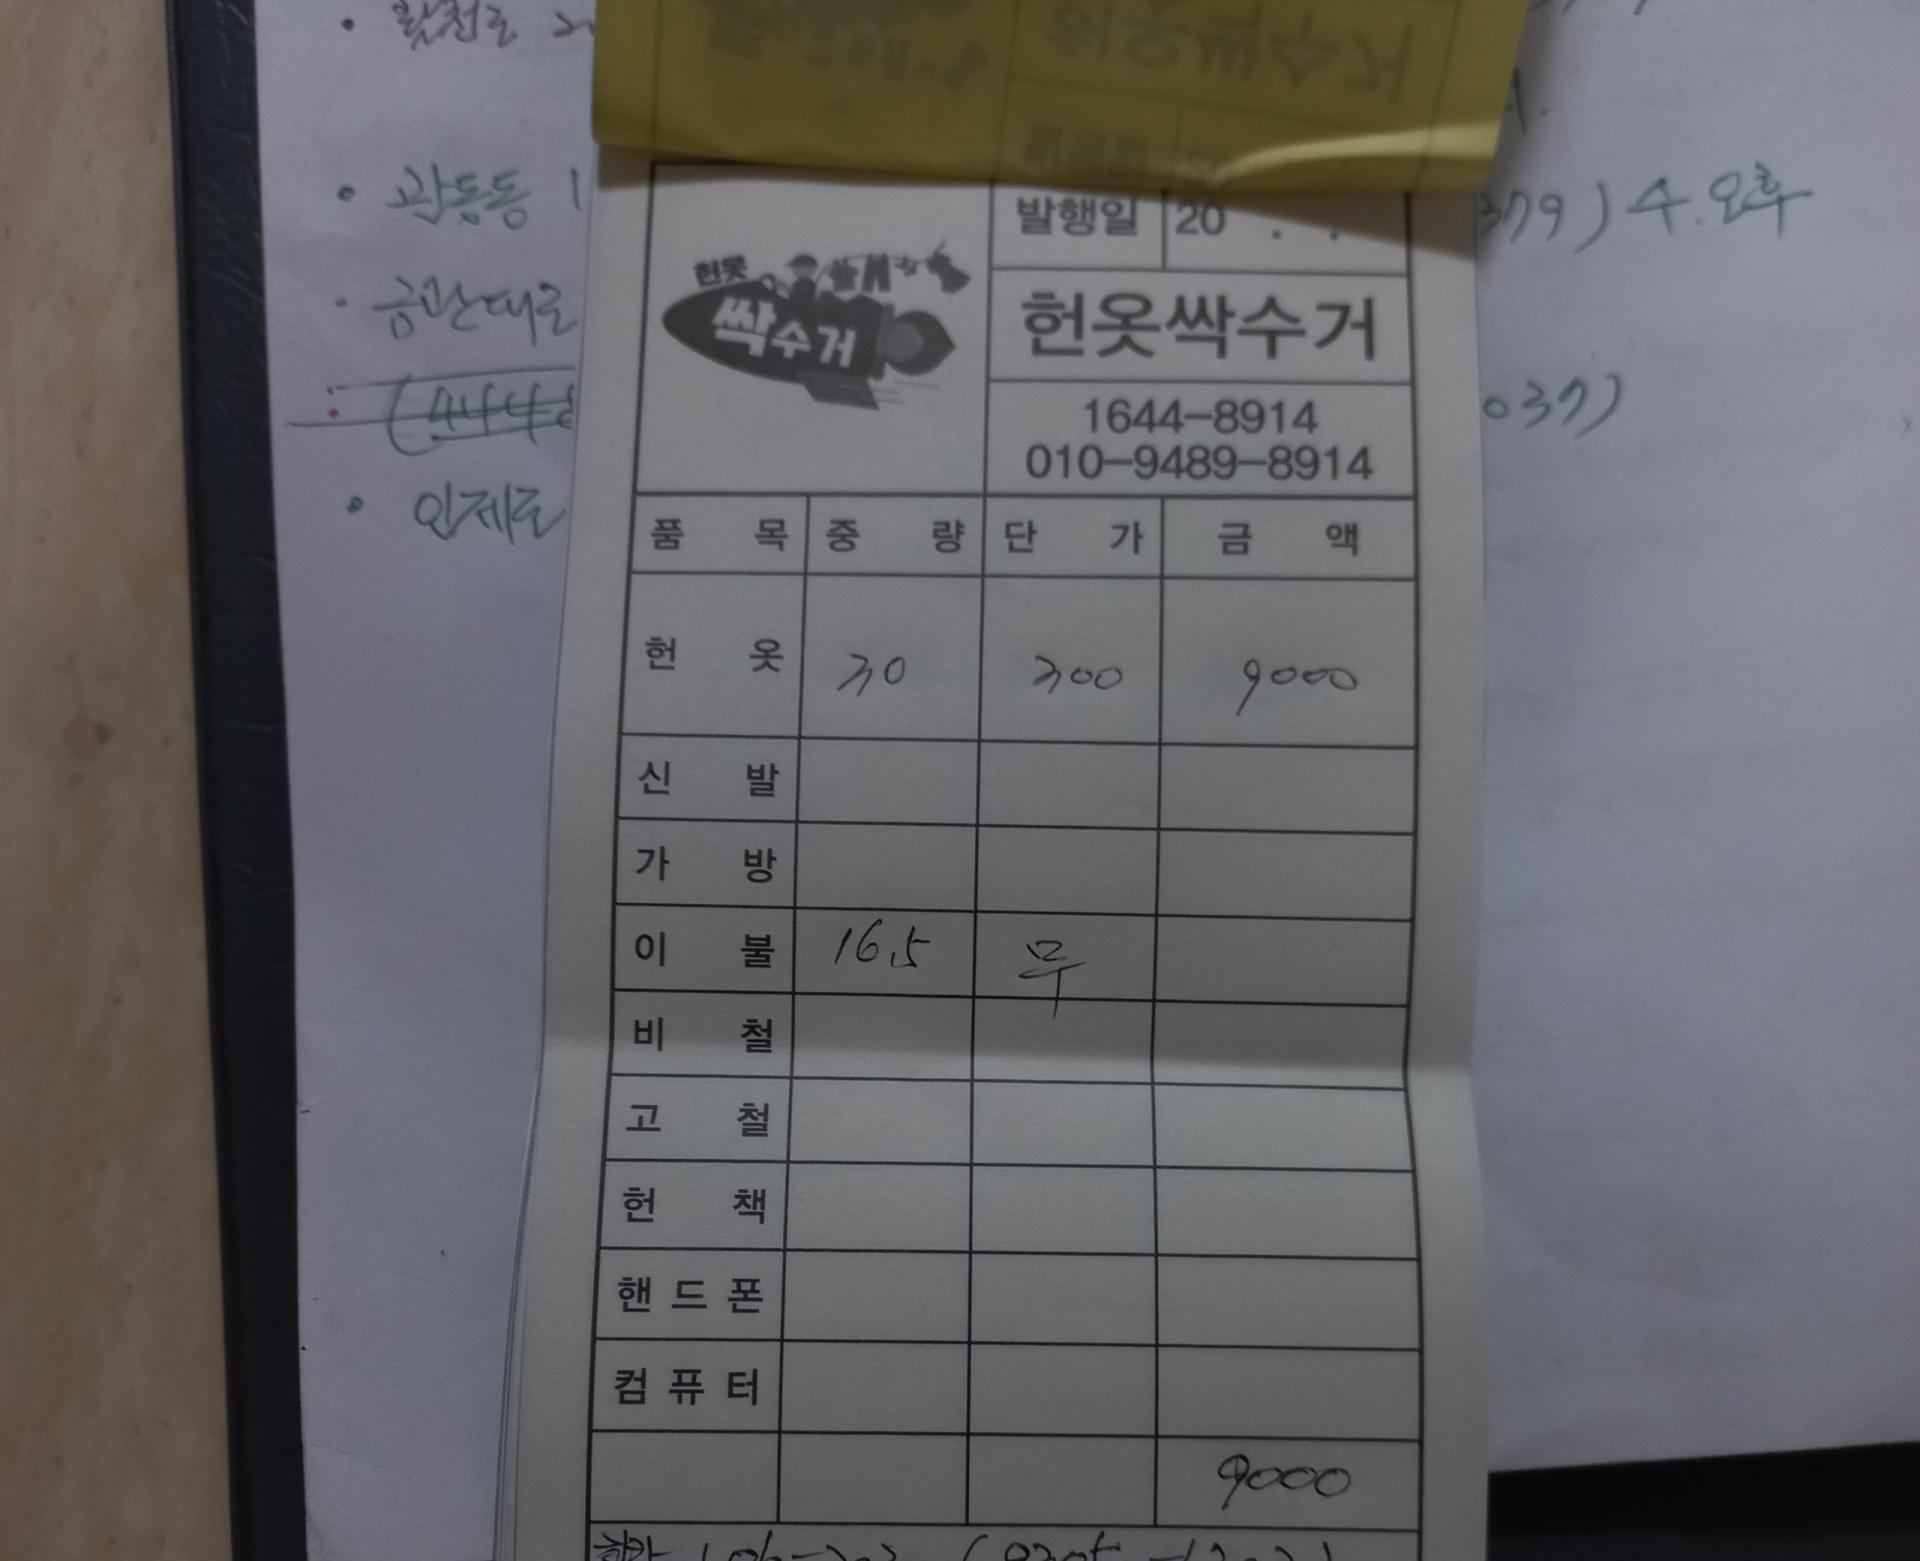 발행일 20 . .
헌옷
싹수거
헌옷싹수거
1644-8914
010-9489-8914
품 목 중 량 단 가 금 액
헌 옷 30 300 9000
신 발
가 방
이 불 16.5 무
비 철
고 철
헌 책
핸 드 폰
컴 퓨 터
9000
• 관동동 1
379) 수.오후
• 금관대로
037)
• 인제로